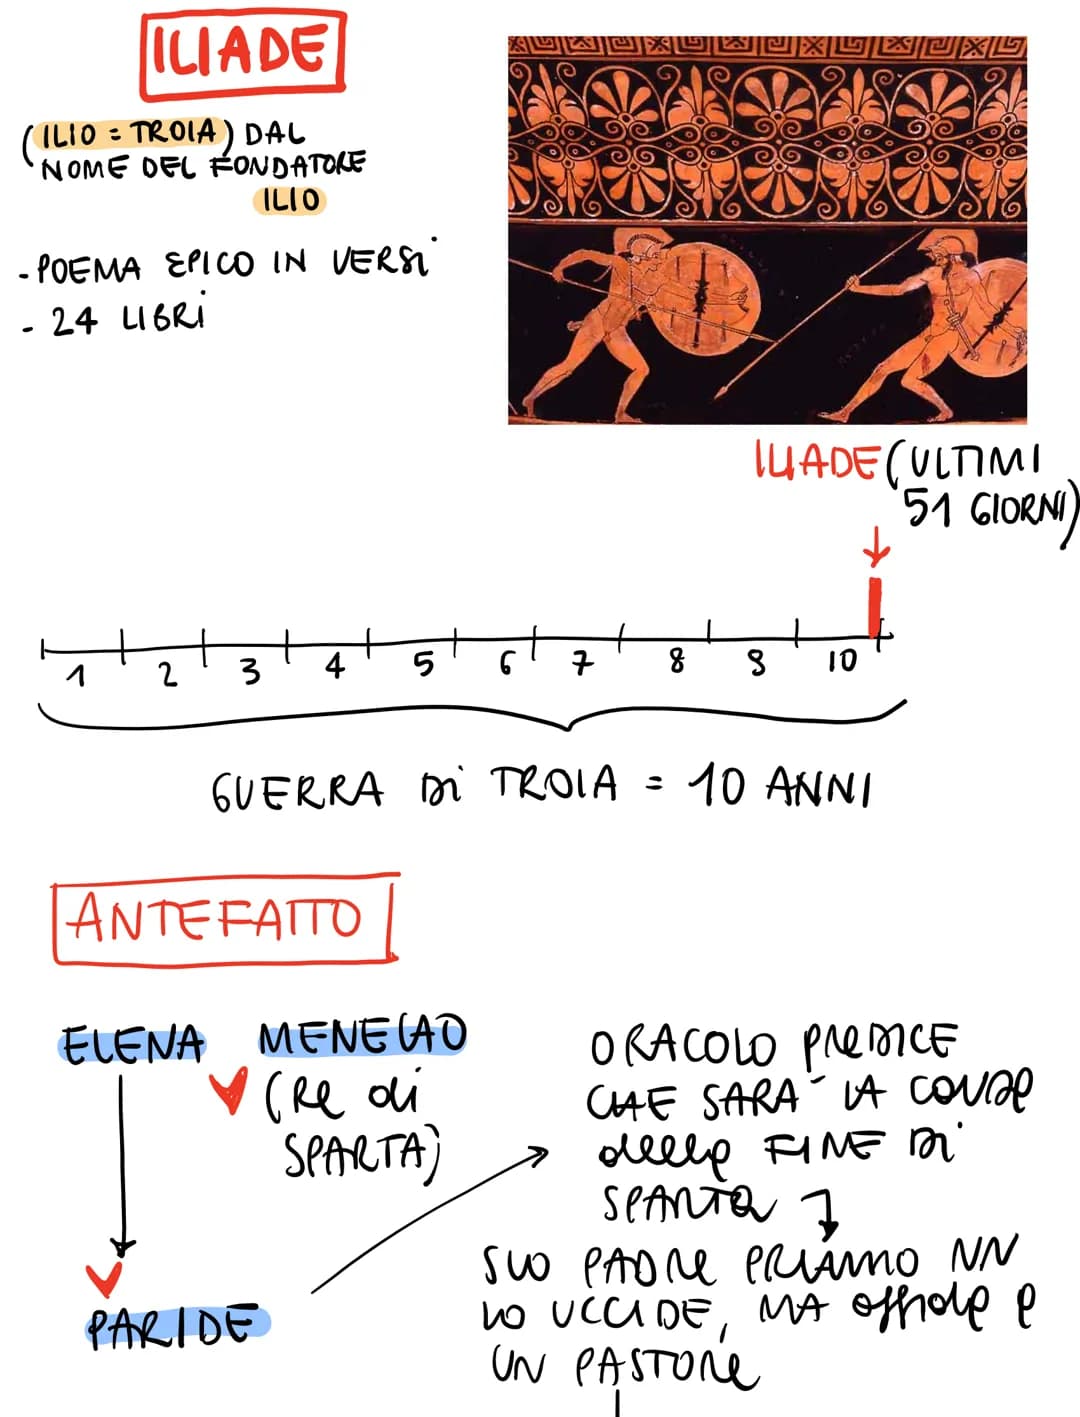 ILIADE
(ILIO = TROIA) DAL
NOME DEL FONDATORE
ILIO
- POEMA EPICO IN VERSI
- 24 LIBRI
ILIADE (ULTIMI
51 GIORNI)
1 2 3 4 5 6 7 8 9 10
GUERRA DI TROIA = 10 ANNI
ANTEFATTO
ELENA MENELAO
(Re di
SPARTA)
PARIDE
ORACOLO PREDICE
CHE SARA' LA COUSA
della FINE DI
SPARTA
SUO PADRE PRIAMO NN
LO UCCIDE, MA affida a
UN PASTORE